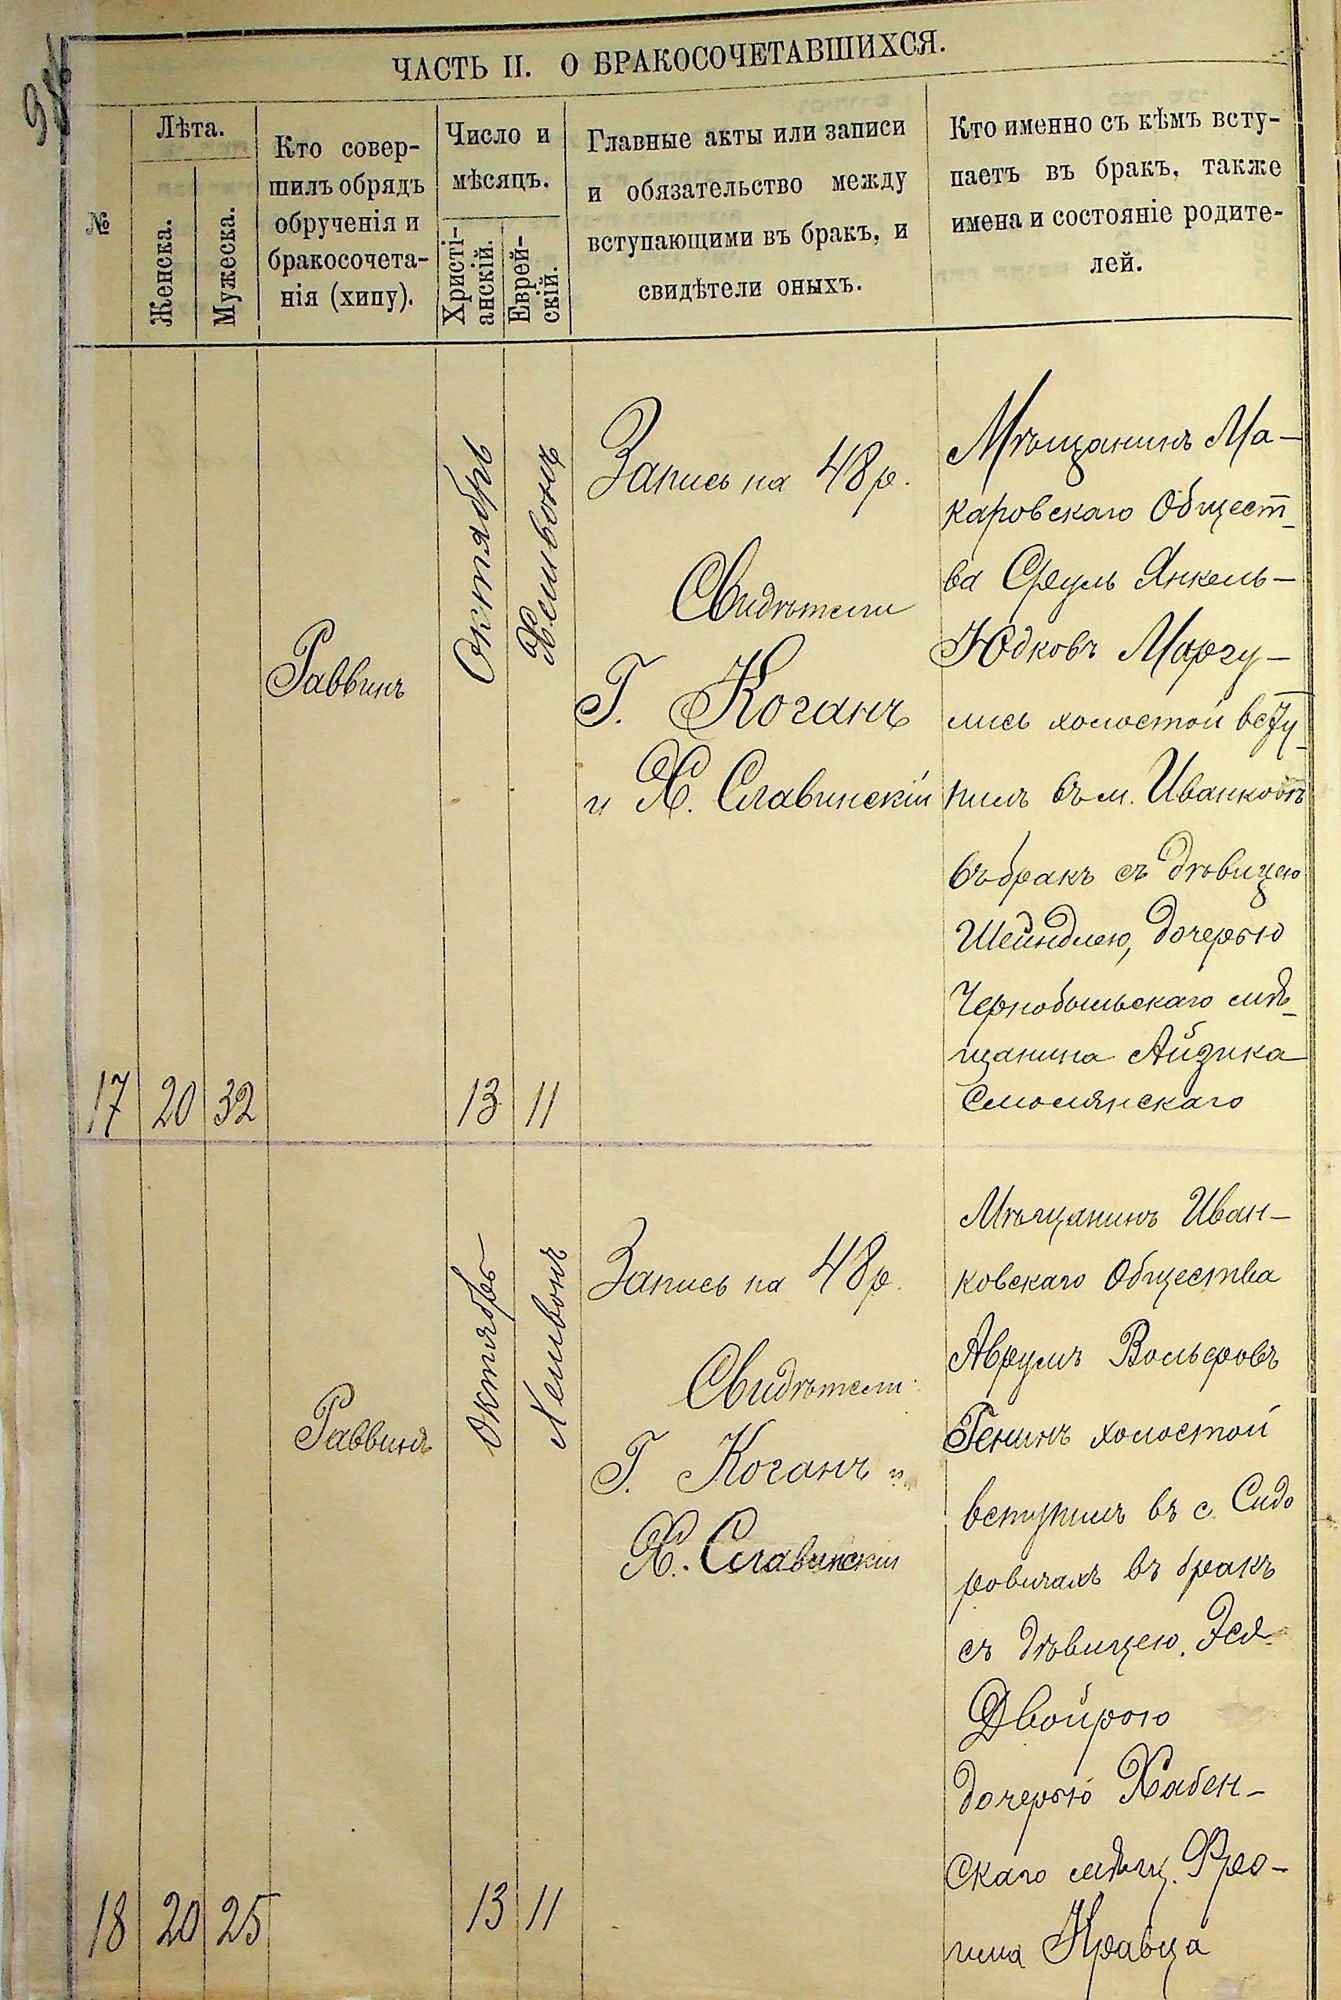 ЧАСТЬ II. О БРАКОСОЧЕТАВШИХСЯ.
№
Лѣта.
Женска.
Мужеска.
Кто совер-
шилъ обрядъ
обрученія и
бракосочета-
нія (хипу).
Число и
мѣсяцъ.
Христі-
анскій.
Еврей-
скій.
Главные акты или записи
и обязательство между
вступающими въ бракъ, и
свидѣтели оныхъ.
Кто именно съ кѣмъ всту-
паетъ въ бракъ, также
имена и состояніе родите-
лей.
17
20
32
Раввинъ
Октябрь
13
Хешвонъ
11
Запись на 48 р.
Свидѣтели
Г. Коганъ
и Х. Славинскій
Мѣщанинъ Ма-
каровскаго Общест-
ва Сруль Янкель-
Юдковъ Маргу-
лись холостой всту-
пилъ въ м. Иванковѣ
въ бракъ съ дѣвицею
Шейндлею, дочерью
Чернобыльскаго мѣ-
щанина Айзика
Смолянскаго
18
20
25
Раввинъ
Октябрь
13
Хешвонъ
11
Запись на 48 р.
Свидѣтели
Г. Коганъ и
Х. Славинскій
Мѣщанинъ Иван-
ковскаго Общества
Аврумъ Вольфовъ
Генинъ холостой
вступилъ въ с. Сидо
ровичахъ въ бракъ
съ дѣвицею Эся
Двойрою
дочерью Хабен-
скаго мѣщ. Фро-
има Кравца